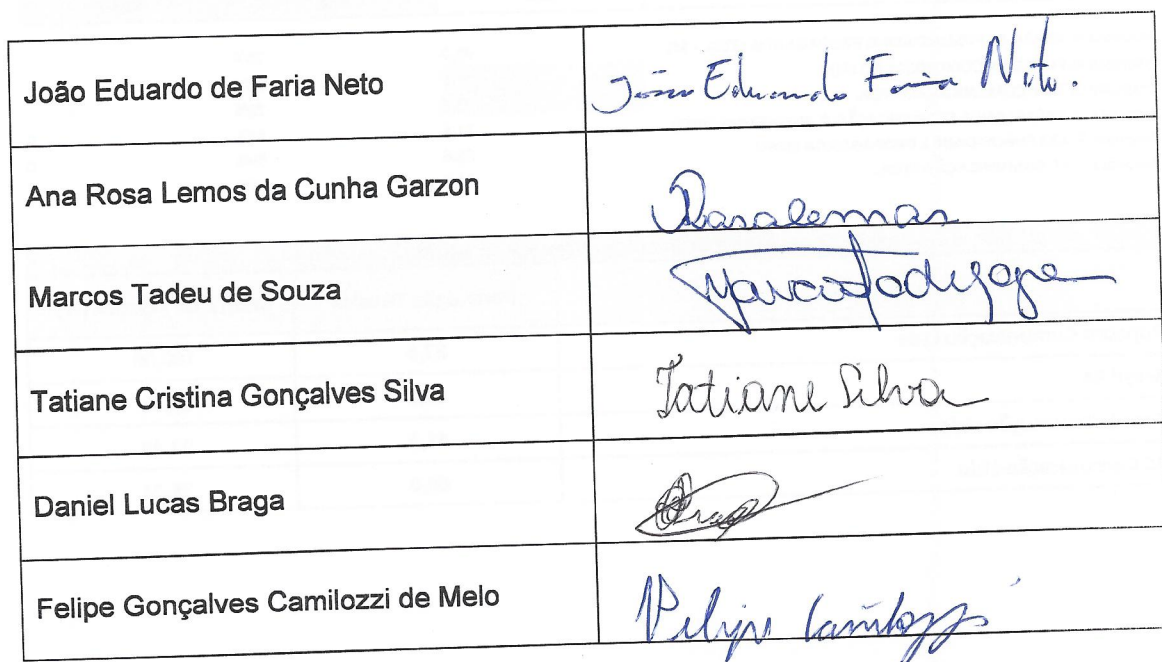 João Eduardo de Faria Neto
João Eduardo Faria Neto.
Ana Rosa Lemos da Cunha Garzon
Rosalemos
Marcos Tadeu de Souza
Tatiane Cristina Gonçalves Silva
Tatiane Silva
Daniel Lucas Braga
Felipe Gonçalves Camilozzi de Melo
Felipe Camilozzi